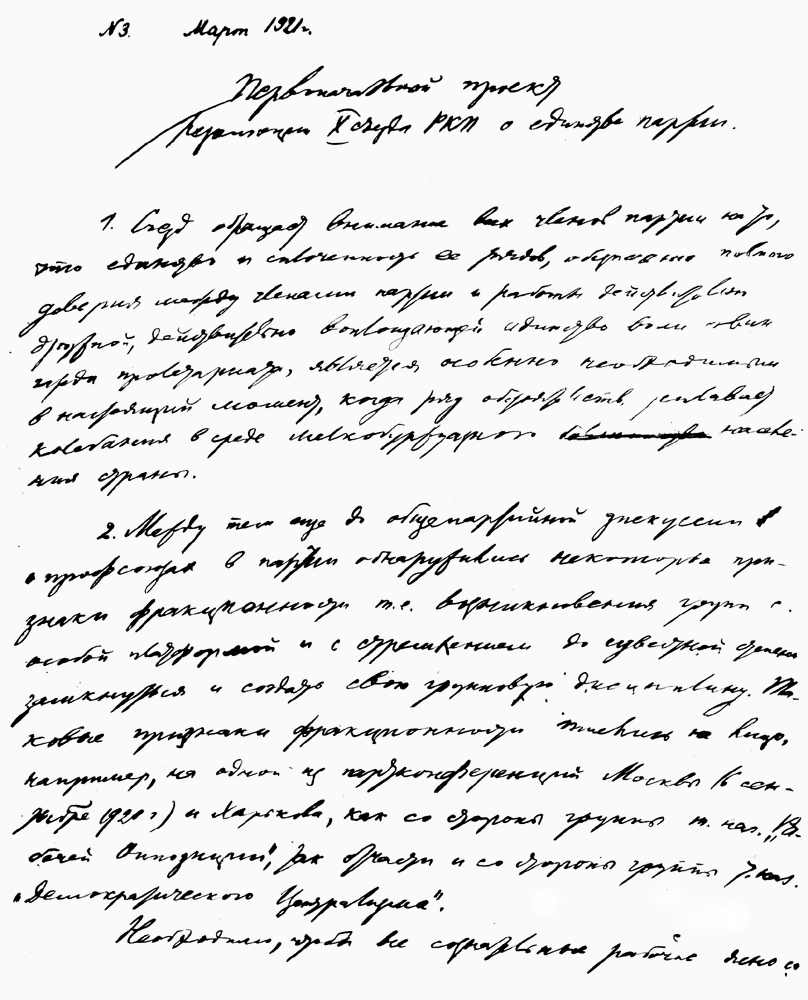 N3. Март 1921 г.
Первоначальный проект
Резолюции X съезда РКП о единстве партии.
1. Съезд обращает внимание всех членов партии на то,
что единство и сплоченность ее рядов, обеспечение полного
доверия между членами партии и работы действительно
дружной, действительно воплощающей единство воли аван
гарда пролетариата, является особенно необходимым
в настоящий момент, когда ряд обстоятельств усиливает
колебания в среде мелкобуржуазного населе-
ния страны.
2. Между тем еще до общепартийной дискуссии
о профсоюзах в партии обнаружились некоторые при-
знаки фракционности т.е. возникновения групп с
особой платформой и с стремлением до известной степени
замкнуться и создать свою групповую дисциплину. Та-
ковые признаки фракционности имелись на лицо,
например, на одной из партконференций Москвы (в сен-
тябре 1920 г) и Харькова, как со стороны группы т. наз. „Ра-
бочей Оппозиции", так отчасти и со стороны группы т. наз.
„Демократического Централизма".
Необходимо, чтобы все сознательные рабочие ясно со